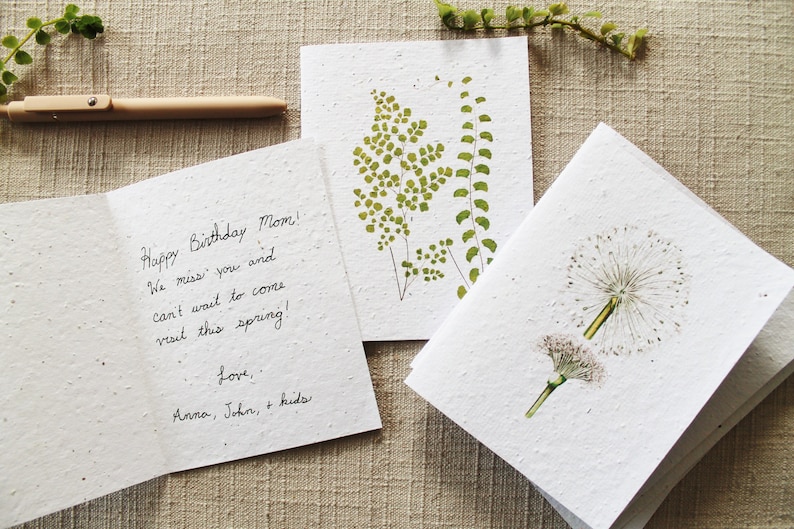 Happy Birthday Mom!
We miss you and
can't wait to come
visit this spring!
Love,
Anna, John, + kids